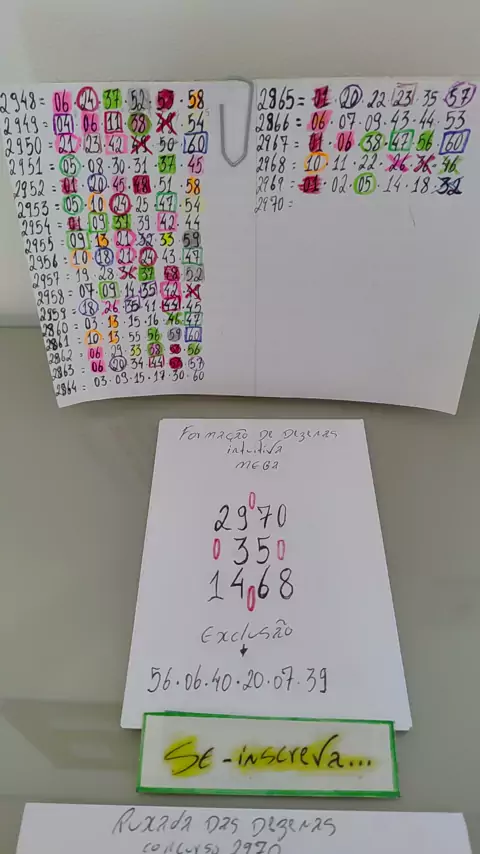 2948 = 06 · 24 · 37 · 52 · 53 · 58
2949 = 04 · 06 · 11 · 38 · 54
2950 = 21 · 23 · 42 · 50 · 60
2951 = 05 · 08 · 30 · 31 · 37 · 45
2952 = 01 · 20 · 45 · 48 · 51 · 58
2953 = 05 · 10 · 24 · 25 · 47 · 54
2954 = 01 · 09 · 37 · 39 · 42 · 44
2955 = 09 · 13 · 21 · 32 · 33 · 59
2956 = 10 · 18 · 21 · 24 · 43 · 47
2957 = 19 · 28 · 36 · 37 · 48 · 52
2958 = 07 · 09 · 14 · 35 · 42
2959 = 18 · 26 · 35 · 41 · 44 · 45
2860 = 03 · 13 · 15 · 16 · 46 · 47
2861 = 10 · 13 · 55 · 56 · 59 · 60
2862 = 06 · 29 · 33 · 38 · 56
2863 = 06 · 20 · 34 · 44 · 57
2864 = 03 · 09 · 15 · 17 · 30 · 60
2865 = 01 · 20 · 22 · 23 · 35 · 57
2866 = 06 · 07 · 09 · 43 · 44 · 53
2967 = 01 · 06 · 38 · 47 · 56 · 60
2968 = 10 · 11 · 22 · 26 · 36 · 46
2969 = 01 · 02 · 05 · 14 · 18 · 32
2970 =
Formação de dezenas
intuitiva
MEGA
0
2970
0 35 0
1468
0
Exclusão
56 · 06 · 40 · 20 · 07 · 39
SE-inscreva...
Puxada das dezenas
concurso 2970